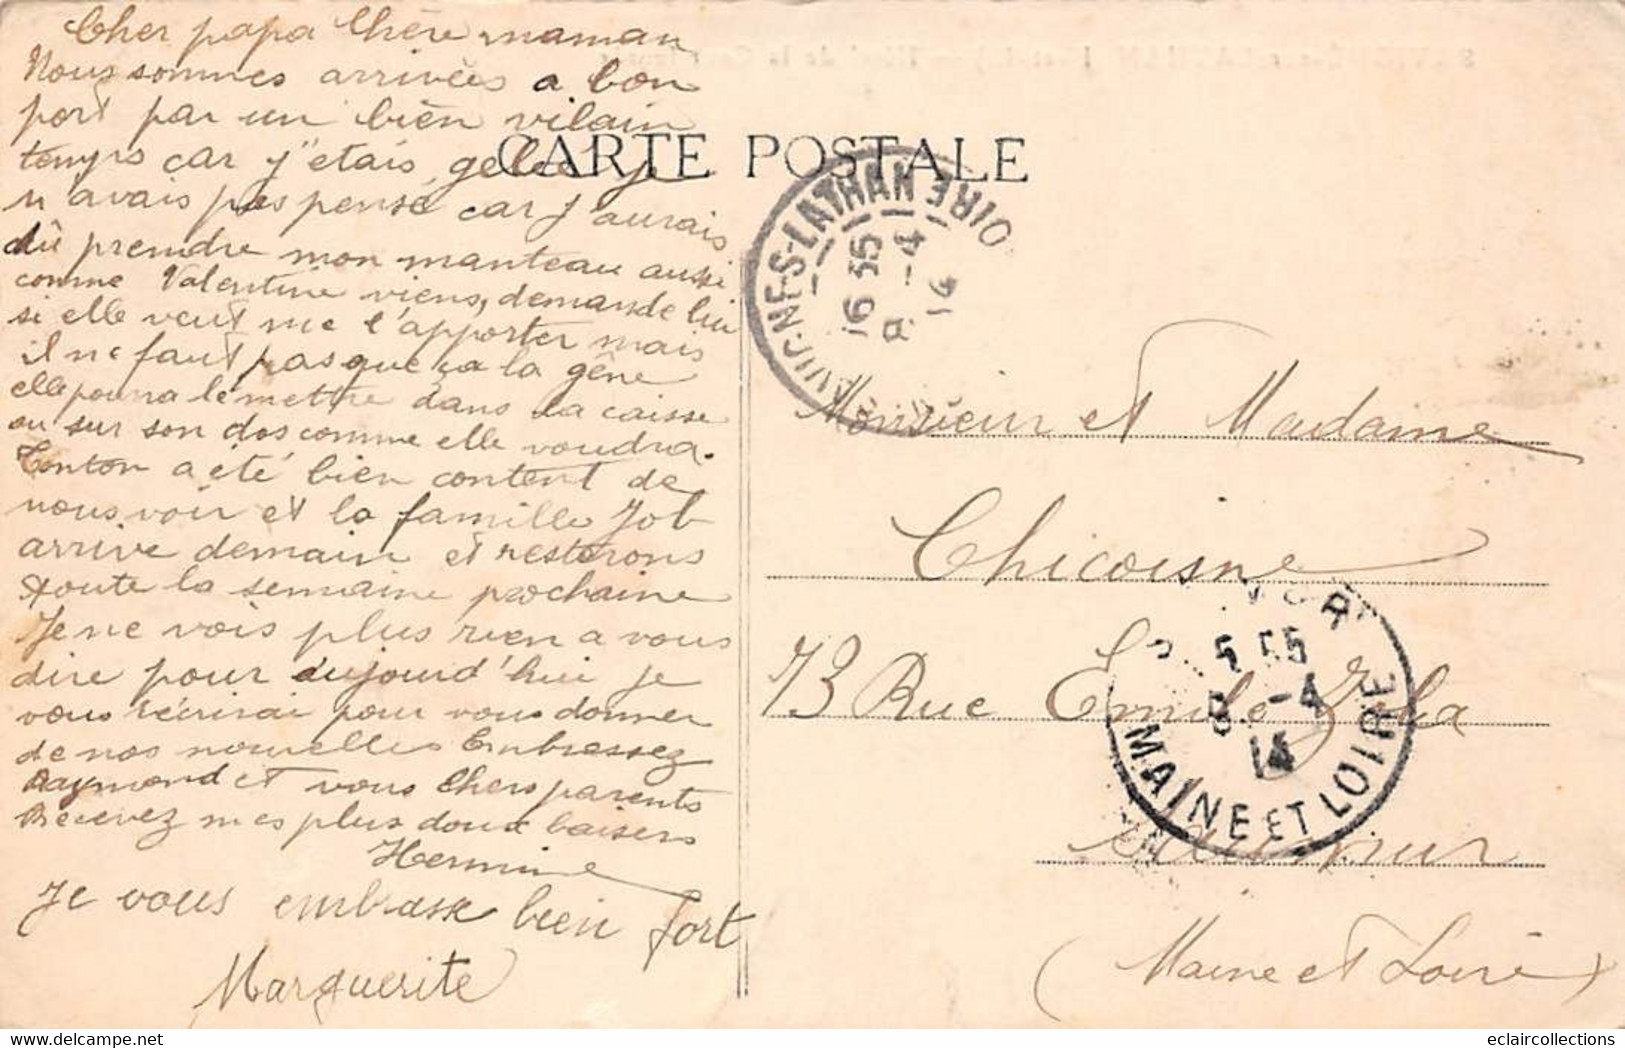 Cher papa Chère maman
Nous sommes arrivées a bon
port par un bien vilain
temps car j'etais gelée je
n'avais pas pensé car j'aurais
dû prendre mon manteau aussi
comme Valentine viens, demande lui
si elle veut me l'apporter mais
il ne faut pas que ça la gêne
elle pourra le mettre dans la caisse
ou sur son dos comme elle voudra.
Tonton a été bien content de
nous voir et la famille Job
arrive demain et resterons
toute la semaine prochaine
Je ne vois plus rien a vous
dire pour aujourd'hui je
vous récrirai pour vous donner
de nos nouvelles Embrassez
Raymond et vous Chers parents
Recevez mes plus doux baisers
Hermine
Je vous embrasse bien fort
Marguerite
CARTE POSTALE
NÉ-S-LATHAN
INDRE ET LOIRE
16 55
8 - 4
14
Monsieur et Madame
Chicoisne
73 Rue Emile Zola
Saumur
(Maine et Loire)
5 55
8 - 4
14
MAINE ET LOIRE
eclaircollections@delcampe